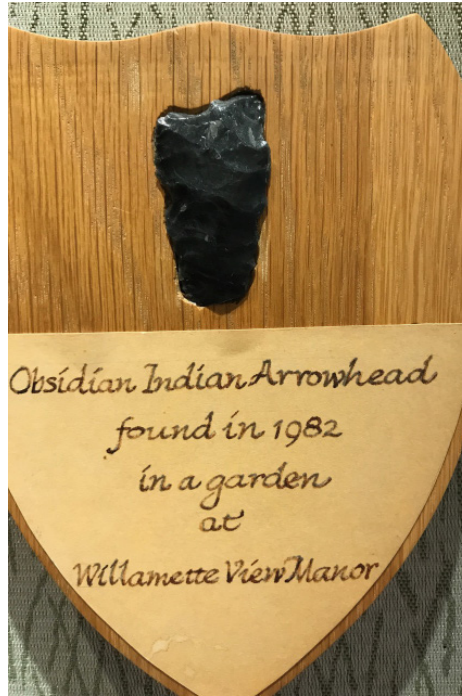 Obsidian Indian Arrowhead
found in 1982
in a garden
at
Willamette View Manor